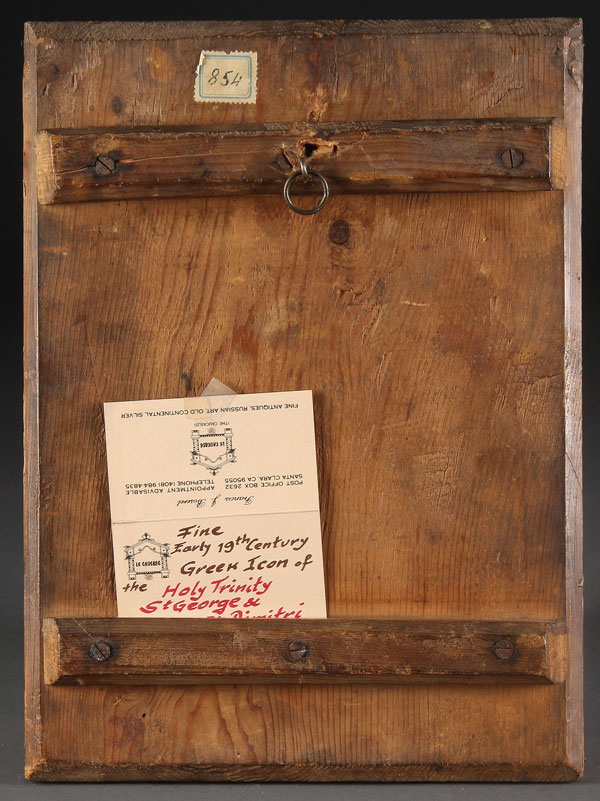 854
FINE ANTIQUES, RUSSIAN ART, OLD CONTINENTAL SILVER
(THE CAUCASUS)
LE CAUCASE
POST OFFICE BOX 2632
SANTA CLARA, CA 95055
APPOINTMENT ADVISABLE
TELEPHONE (408) 984-4835
Francis J.
LE CAUCASE
Fine
Early 19th Century
Greek Icon of
the Holy Trinity
St George &
Dimitri